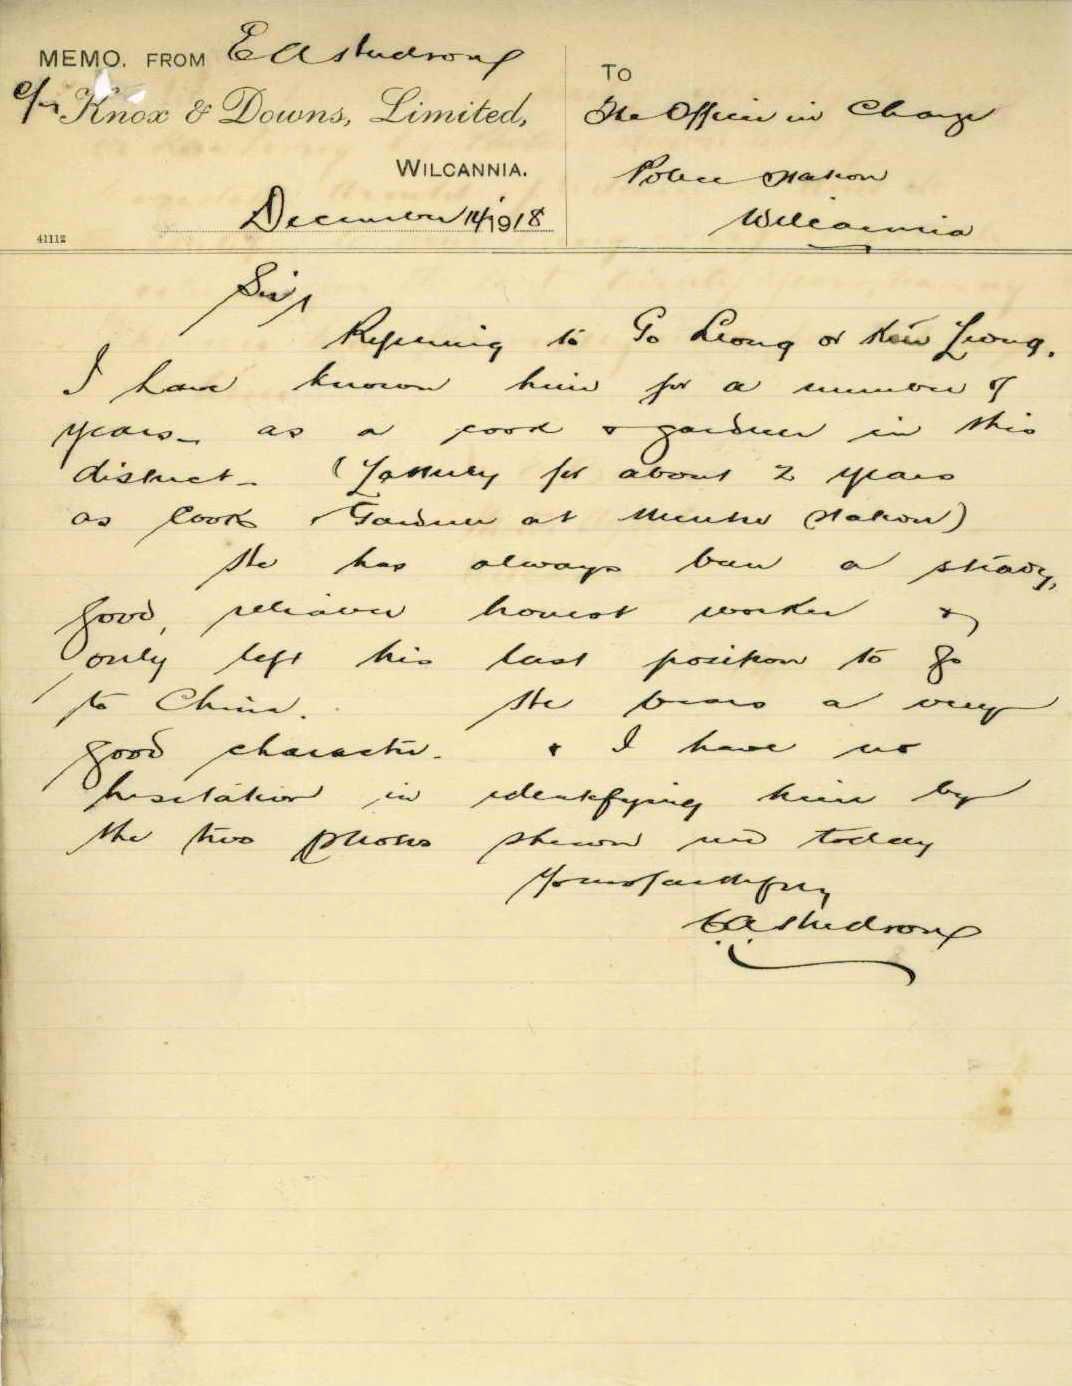 MEMO. FROM E A
c/o Knox & Downs, Limited,
WILCANNIA.
December 14/1918
41112
TO
The Officer in Charge
Police Station
Wilcannia
Sir,
Referring to Go Leong or Leong.
I have known him for a number of
years - as a cook & gardner in this
district - (Latterly for about 2 years
as Cook & Gardner at Station)
He has always been a steady,
good, reliable honest worker &
only left his last position to go
to China. He bears a very
good character - & I have no
hesitation in identifying him by
the two photos shewn me today
Yours faithfully
E.A.